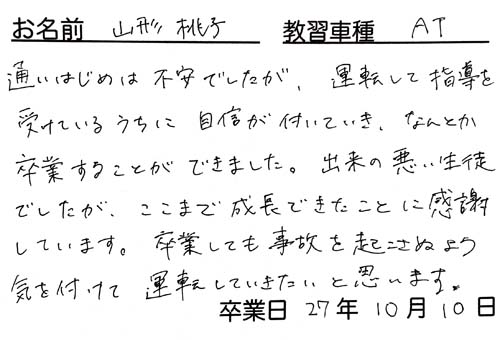 お名前 山形 桃子 教習車種 AT
通いはじめは不安でしたが、運転して指導を
受けているうちに自信が付いていき、なんとか
卒業することができました。出来の悪い生徒
でしたが、ここまで成長できたことに感謝
しています。卒業しても事故を起こさぬよう
気を付けて運転していきたいと思います。
卒業日 27年10月10日